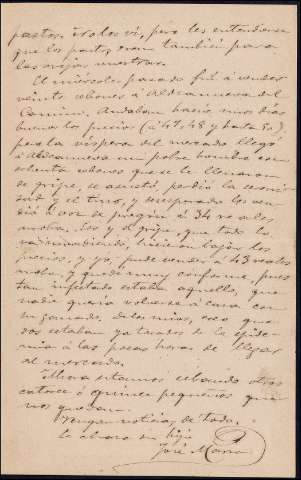 pastos, no los vi, pero les entendieron
que los pastos eran también para
las ovejas nuestras.
El miércoles pasado fuí a vender
veinte cebones a Aldeanueva del
Camino. Andaban hacía unos días
buenos los precios (a 47, 48 y hasta 50)
pero la víspera del mercado llegó
a Aldeanueva un pobre hombre con
ochenta cebones que se le llenaron
de gripe, se asustó, perdió la
y el tino, y desesperado los ven-
dió a voz de pregón a 34 reales
arroba. Eso y la gripe, que todo lo
va invadiendo, hicieron bajar los
precios, y yo pude vender a 43 reales
arroba, y quedé muy conforme, pues
tan infectado estaba aquello, que
nadie quería volverse a casa con
su ganado; de los míos, creo que
dos estaban ya tocados de la epide-
mia a las pocas horas de llegar
al mercado.
Ahora estamos cebando otros
catorce o quince pequeños que
nos quedan.
Vengan noticias de todo.
Le abraza su hijo
José María